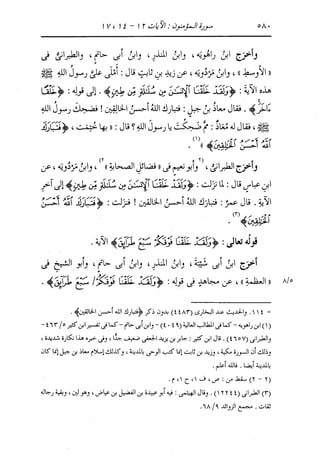 ٥٨٠ سورة المؤمنون : الآيات ١٢ - ١٤ ، ١٧
وأخرَج ابنُ راهُويَه ، وابنُ المنذرِ ، وابنُ أبى حاتمٍ ، والطبرانىُّ فى
« الأوسطِ » ، وابنُ مَرْدُويَه ، عن زيدِ بنِ ثابتٍ قال : أَمْلَى علىَّ رسولُ اللهِ ﷺ
هذه الآيةَ : ﴿ وَلَقَدْ خَلَقْنَا ٱلْإِنسَٰنَ مِن سُلَٰلَةٍ مِّن طِينٍ ﴾ . إلى قولِه : ﴿ خَلْقًا
ءَاخَرَ ﴾ . فقال معاذُ بنُ جبلٍ : فتبارك اللهُ أحسنُ الخالقِين ! فضحِك رسولُ اللهِ
ﷺ ، فقال له مُعاذٌ : مِمَّ ضحِكتَ يا رسولَ اللهِ ؟ قال : « بها خُتِمَت ، ﴿ فَتَبَارَكَ
ٱللَّهُ أَحْسَنُ ٱلْخَٰلِقِينَ ﴾ » (١) .
وأخرَج الطبرانىُّ ، (٢) وأبو نعيمٍ فى « فضائلِ الصحابةِ » (٢) ، وابنُ مَرْدُويَه ، عن
ابنِ عباسٍ قال : لما نزَلت : ﴿ وَلَقَدْ خَلَقْنَا ٱلْإِنسَٰنَ مِن سُلَٰلَةٍ مِّن طِينٍ ﴾ إلى آخرِ
الآيةِ . قال عمرُ : فتبارك اللهُ أحسنُ الخالقِين ! فنزَلت : ﴿ فَتَبَارَكَ ٱللَّهُ أَحْسَنُ
ٱلْخَٰلِقِينَ ﴾ (٣) .
قولُه تعالى : ﴿ وَلَقَدْ خَلَقْنَا فَوْقَكُمْ سَبْعَ طَرَآئِقَ ﴾ الآية .
أخرَج ابنُ أبى شَيْبةَ ، وابنُ المنذرِ ، وابنُ أبى حاتمٍ ، وأبو الشيخِ فى
٨/٥ « العظمةِ » ، عن مجاهدٍ فى قولِه : ﴿ وَلَقَدْ خَلَقْنَا فَوْقَكُمْ سَبْعَ طَرَآئِقَ ﴾ .
= ١١٤ . والحديث عند البخارى (٤٤٨٣) بدون ذكر ﴿ فتبارك الله أحسن الخالقين ﴾ .
(١) ابن راهويه - كما فى المطالب العالية (٤٠٤٩) - وابن أبى حاتم - كما فى تفسير ابن كثير ٤٦٣/٥ -
والطبرانى (٤٦٥٧) . قال ابن كثير : جابر بن يزيد الجعفى ضعيف جدًّا ، وفى خبره هذا نكارة شديدة ،
وذلك أن السورة مكية ، وزيد بن ثابت إنما كتب الوحى بالمدينة ، وكذلك إسلام معاذ بن جبل إنما كان
بالمدينة أيضا . فالله أعلم .
(٢ - ٢) سقط من : ص ، ف ١ ، ح ١ ، م .
(٣) الطبرانى (١٢٢٤٤) . وقال الهيثمى : فيه أبو عبيدة بن الفضيل بن عياض ، وهو لين ، وبقية رجاله
ثقات . مجمع الزوائد ٦٨/٩ .